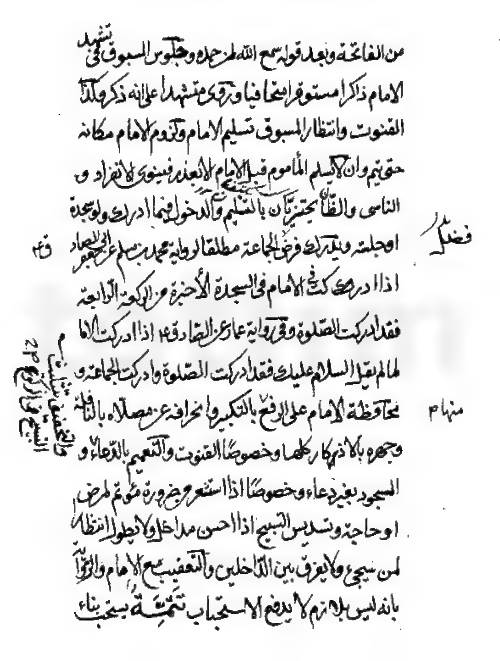 من الفاتحة وبعد قوله سمع الله لمن حمده وجلوس المسبوق في تشهد
الامام ذاكرا مستوفزا متجافيا وروى متشهدا على انه ذكر وكذا
القنوت وانتظار المسبوق تسليم الامام ولزوم الامام مكانه
حتى يتم وان لا يسلم المأموم قبل الامام الا بعذر فينوى الانفراد و
الناسى والظان يجتزيان بالتسليم والدخول فيما ادرك ولو سجدة
او جلسة ويدرك فضل الجماعة مطلقا لرواية محمد بن مسلم عن
اذا ادركت الامام فى السجدة الأخيرة من الركعة الرابعة
فقد ادركت الصلوة وفى رواية عمار عن الصادق ع اذا ادركت الاما
لما لم يقل السلام عليك فقد ادركت الصلوة وادركت الجماعة و
محافظة الامام على الرفع بالتكبير وانحرافه عن مصلاه بالنافلة
وجهره بالاذكار كلها وخصوصا القنوت والتعميم بالدعاء و
السجود بغير دعاء وخصوصا اذا استشعر بضرورة مؤتم لمرض
او حاجة وتسديس التسبيح اذا احس بداخل ولا يطول انتظارا
لمن سيجئ ولا يفرق بين الداخلين والتعقيب مع الامام والرواية
بانه ليس بلازم لا يدفع الاستحباب تتمة يستحب بناء
فضل
منها م